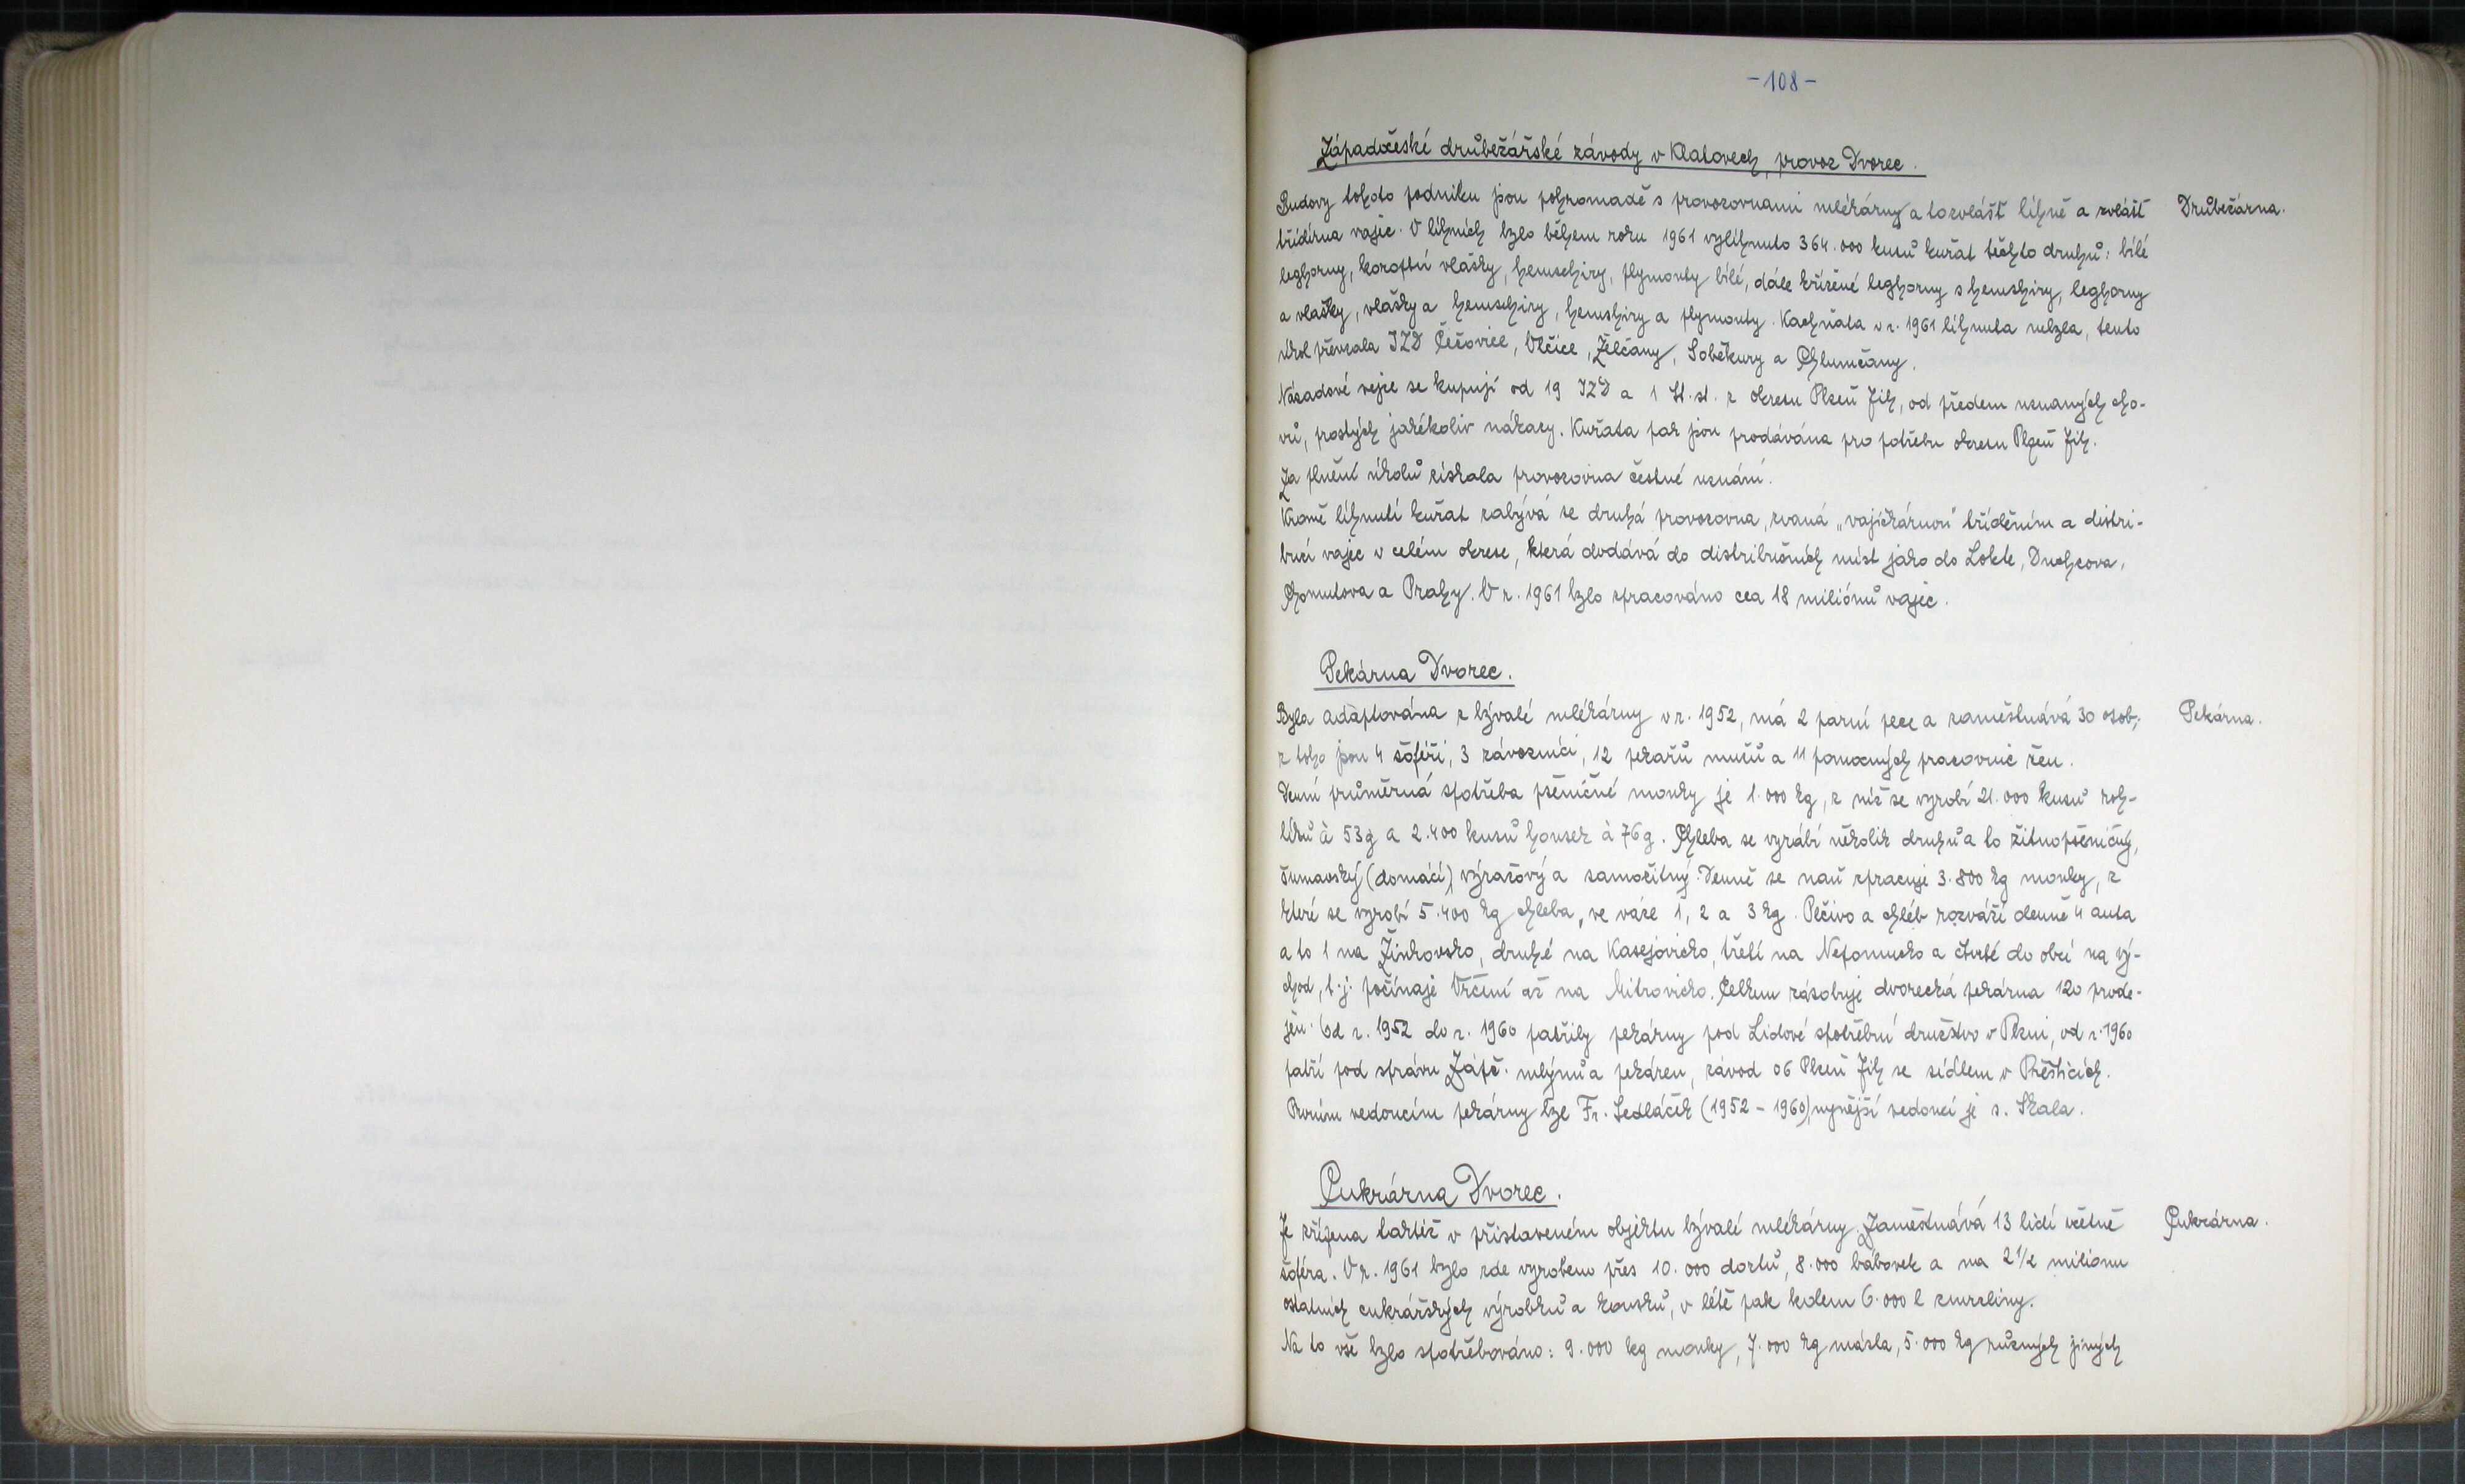 -108-
Západočeské drůbežářské závody v Klatovech, provoz Dvorec.
Budovy tohoto podniku jsou pohromadě s provozovnami mlékárny a to zvlášť líhně a zvlášť
Drůbežárna.
třídírna vajec. V líhních bylo během roku 1961 vylíhnuto 364.000 kusů kuřat těchto druhů: bílé
leghorny, koroptví vlašky, hemschiry, plymouty bílé, dále křížené leghorny s hemshiry, leghorny
a vlašky, vlašky a hemschiry, hemshiry a plymouty. Kachňata v r. 1961 líhnuta nebyla, tento
úkol převzala JZD Čečovice, Vlčice, Želčany, Soběkury a Chlumčany.
Násadové vejce se kupují od 19 JZD a 1 St. st. z okresu Plzeň Jih, od předem uznaných cho-
vů, prostých jakékoliv nákazy. Kuřata pak jsou prodávána pro potřebu okresu Plzeň Jih.
Za plnění úkolů získala provozovna čestné uznání.
Kromě líhnutí kuřat zabývá se druhá provozovna, zvaná „vajíčkárnou" tříděním a distri-
bucí vajec v celém okrese, která dodává do distribučních míst jako do Lokte, Duchcova,
Chomutova a Prahy. V r. 1961 bylo zpracováno cca 18 miliónů vajec.
Pekárna Dvorec.
Byla adaptována z bývalé mlékárny v r. 1952, má 2 parní pece a zaměstnává 30 osob,
Pekárna.
z toho jsou 4 šoféři, 3 závozníci, 12 pekařů mužů a 11 pomocných pracovnic žen.
Denní průměrná spotřeba pšeničné mouky je 1.000 kg, z níž se vyrobí 21.000 kusů roh-
líků à 53g a 2.400 kusů housek à 76g. Chleba se vyrábí několik druhů a to žitnopšeničný,
šumavský (domácí) výražový a samožitný. Denně se naň zpracuje 3.800 kg mouky, z
které se vyrobí 5.400 kg chleba, ve váze 1, 2 a 3 kg. Pečivo a chléb rozváží denně 4 auta
a to 1 na Žinkovsko, druhé na Kasejovicko, třetí na Nepomucko a čtvrté do obcí na vý-
chod, t.j. počínaje Vrčení až na Mitrovicko. Celkem zásobuje dvorecká pekárna 120 prode-
jen. Od r. 1952 do r. 1960 patřily pekárny pod Lidové spotřební družstvo v Plzni, od r. 1960
patří pod správu Zápč. mlýnů a pekáren, závod 06 Plzeň Jih se sídlem v Přešticích.
Prvním vedoucím pekárny byl Fr. Sedláček (1952 - 1960), nynější vedoucí je s. Skala.
Cukrárna Dvorec.
Je zřízena taktéž v přistaveném objektu bývalé mlékárny. Zaměstnává 13 lidí včetně
Cukrárna.
šoféra. V r. 1961 bylo zde vyrobeno přes 10.000 dortů, 8.000 bábovek a na 2 1/2 miliónu
ostatních cukrářských výrobků a kousků, v létě pak kolem 6.000 l zmrzliny.
Na to vše bylo spotřebováno: 9.000 kg mouky, 7.000 kg másla, 5.000 kg různých jiných